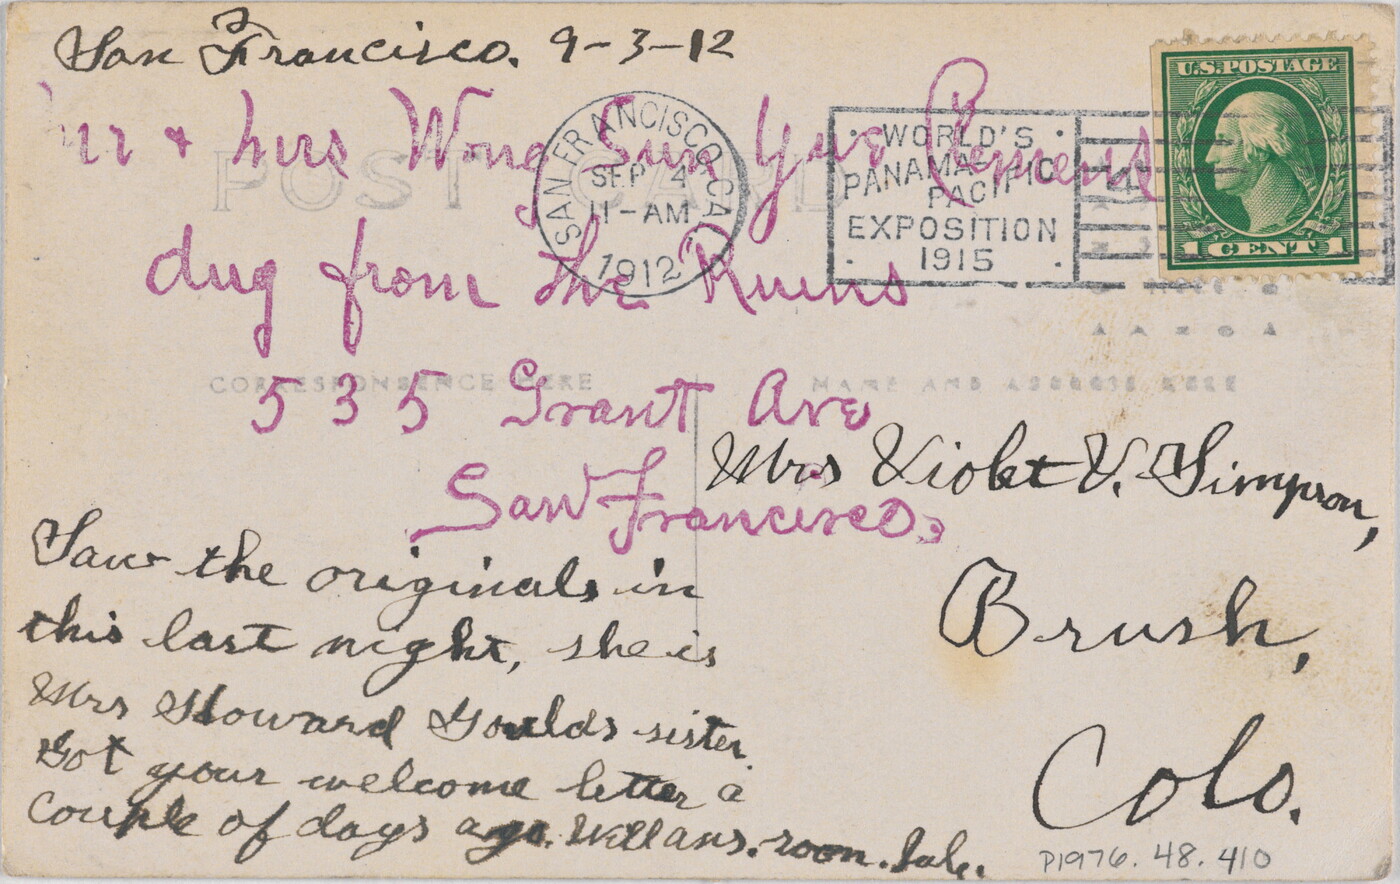 San Francisco. 9-3-12
Mr & Mrs Wong Sun Yue Clemens
dug from the Ruins
535 Grant Ave
San Francisco.
POST CARD
SAN FRANCISCO, CA.
SEP 4
11-AM
1912
WORLD'S
PANAMA-PACIFIC
EXPOSITION
1915
U.S. POSTAGE
1 CENT 1
CORRESPONDENCE HERE
NAME AND ADDRESS HERE
Saw the originals in
this last night, she is
Mrs Howard Goulds sister.
Got your welcome letter a
couple of days ago. Will ans. soon.
Mrs Violet V. Simpson,
Brush,
Colo.
P1976.48.410